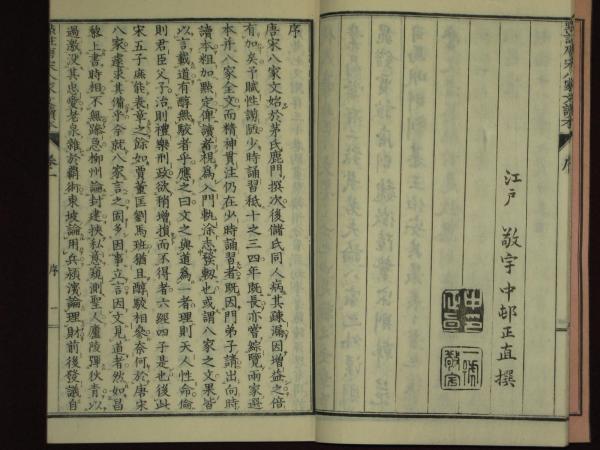 江戸 敬宇中邨正直撰
序
唐宋八家文始於茅氏鹿門撰次後儲氏同人病其疎漏因增益之倍
有加矣予賦性謭陋少時誦習祇十之三四年既長亦嘗綜覽兩家選
本并八家全文而精神貫注仍在少時誦習者既因門弟子請出向時
讀本粗加點定俾讀者視為入門軌涂志發軔也或謂八家之文果皆
以言載道有醇無駁者乎應之曰文之與道為一者理則天人性命倫
則君臣父子治則禮樂刑政欲稍增損而不得者六經四子是也後此
宋五子庶能表章之餘如賈董匡劉馬班猶且醇駁相參奈何於唐宋
八家遽求其備乎今就八家言之固多因事立言因文見道者然如昌
黎上書時相不無躁急柳州論封建挾私意窺測聖人廬陵彈狄青以
過激沒其忠愛老泉雜於霸術東坡論用兵潁濱論理財前後發議自